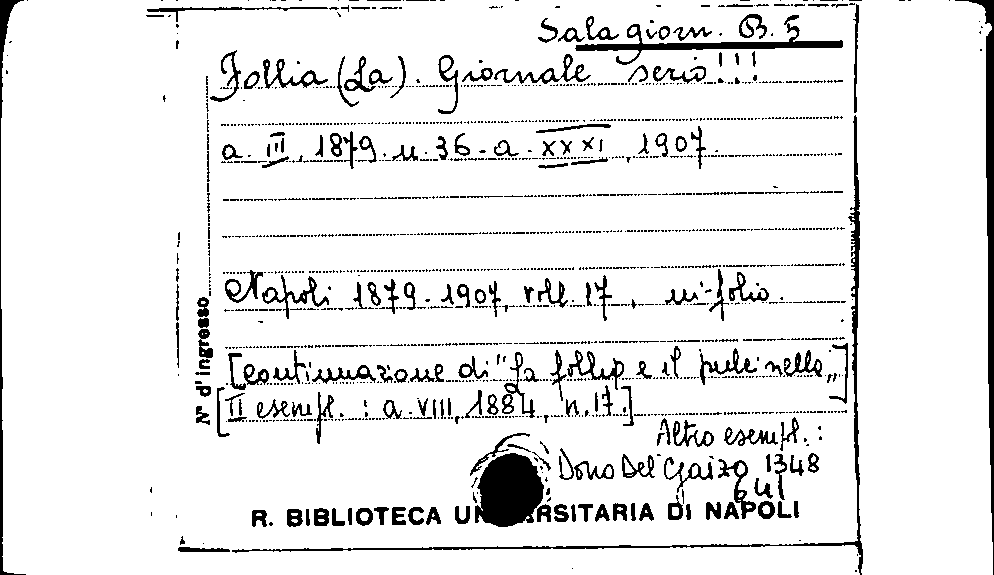 Sala giorn. B. 5
Follia (La). Giornale serio!!!
a. III, 1879. n. 36 - a. XXXI, 1907.
Napoli 1879-1907, voll. 17, in-folio.
[continuazione di "La follia e il pulcinella„]
[II esempl. : a. VIII, 1884, n. 17.]
Altro esempl. :
Dono Del Gaizo 1348
641
R. BIBLIOTECA UNIVERSITARIA DI NAPOLI
N° d'ingresso